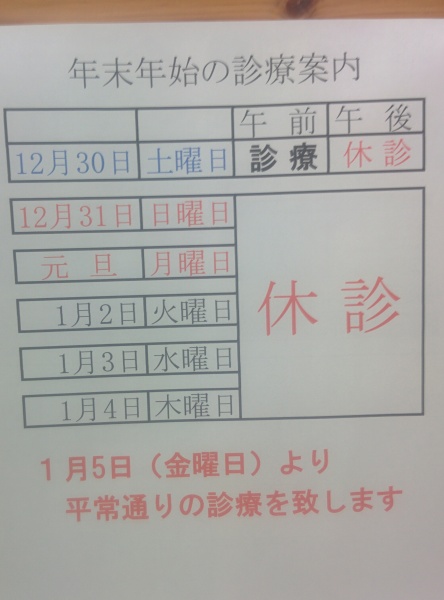 年末年始の診療案内
午前 午後
12月30日 土曜日 診療 休診
12月31日 日曜日
元旦 月曜日
1月2日 火曜日
1月3日 水曜日
1月4日 木曜日
休診
1月5日（金曜日）より
平常通りの診療を致します